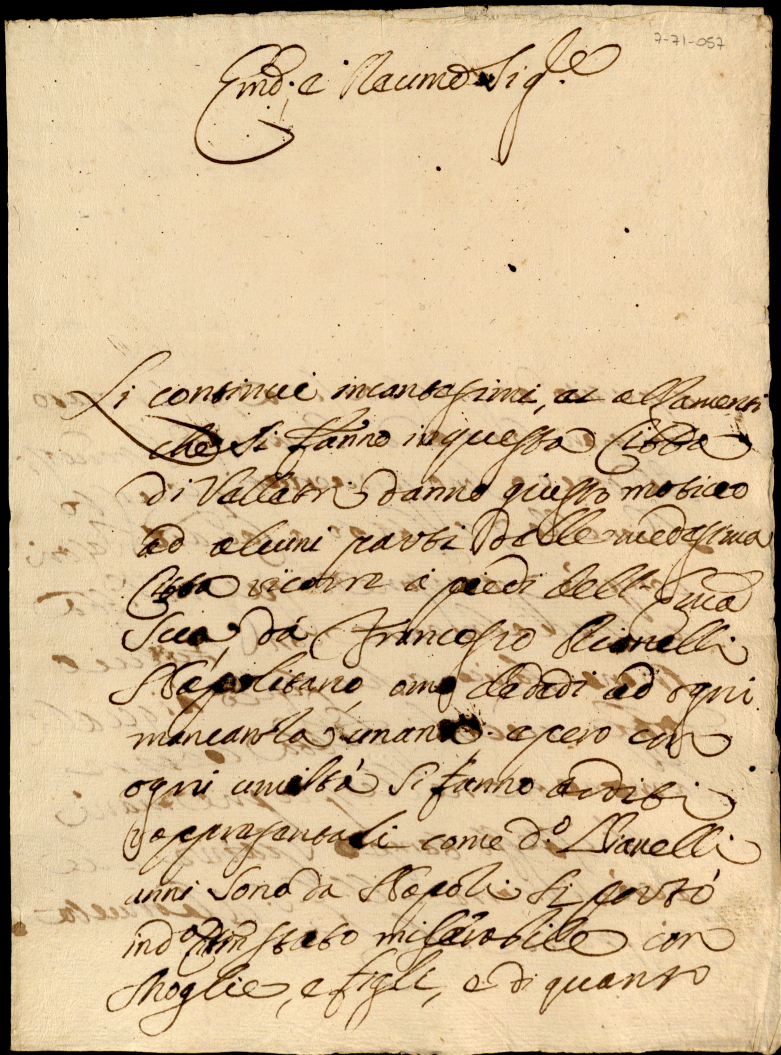 7-71-057
Emd. e Reumo Sig.re
Li continui incantesimi, et
che si fanno in questa Citta
di Velletri danno giusto motivo
ad alcuni parti della medesima
Citta a piedi dell'
Sua, da Francesco
Napolitano, omo ad ogni
umana e pero con
ogni umiltà si fanno arditi
rappresentarli come d.o
anni sono da Napoli si portò
in d.a stato miserabile con
Moglie, e figli, e di quanto